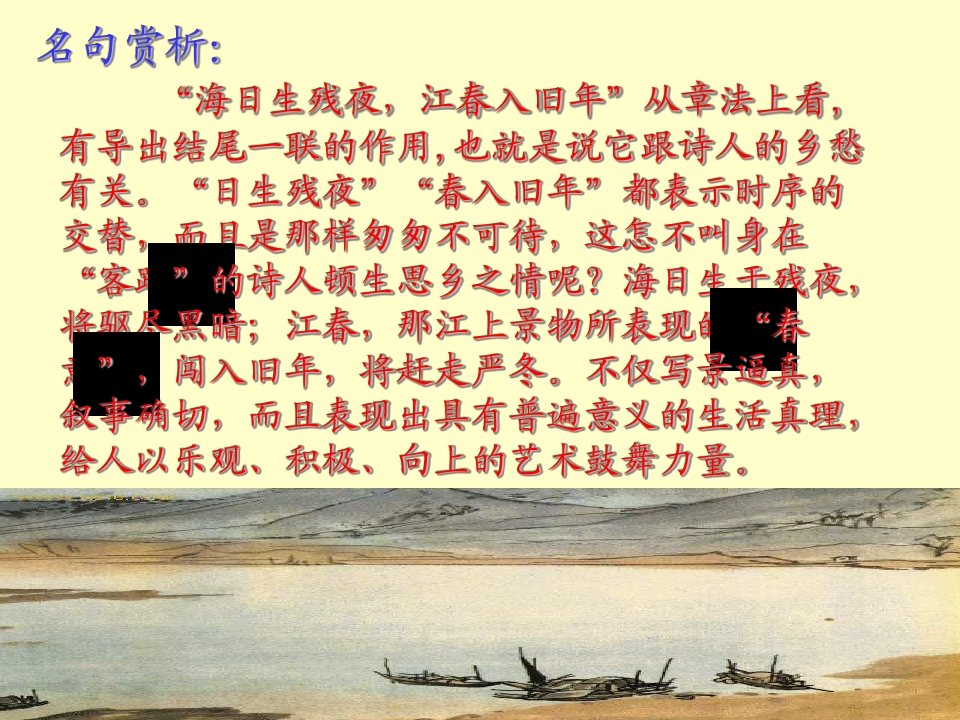 名句赏析：
“海日生残夜，江春入旧年”从章法上看，
有导出结尾一联的作用,也就是说它跟诗人的乡愁
有关。“日生残夜”“春入旧年”都表示时序的
交替，而且是那样匆匆不可待，这怎不叫身在
“客路”的诗人顿生思乡之情呢？海日生于残夜，
将驱尽黑暗；江春，那江上景物所表现的“春
意”，闯入旧年，将赶走严冬。不仅写景逼真，
叙事确切，而且表现出具有普遍意义的生活真理，
给人以乐观、积极、向上的艺术鼓舞力量。